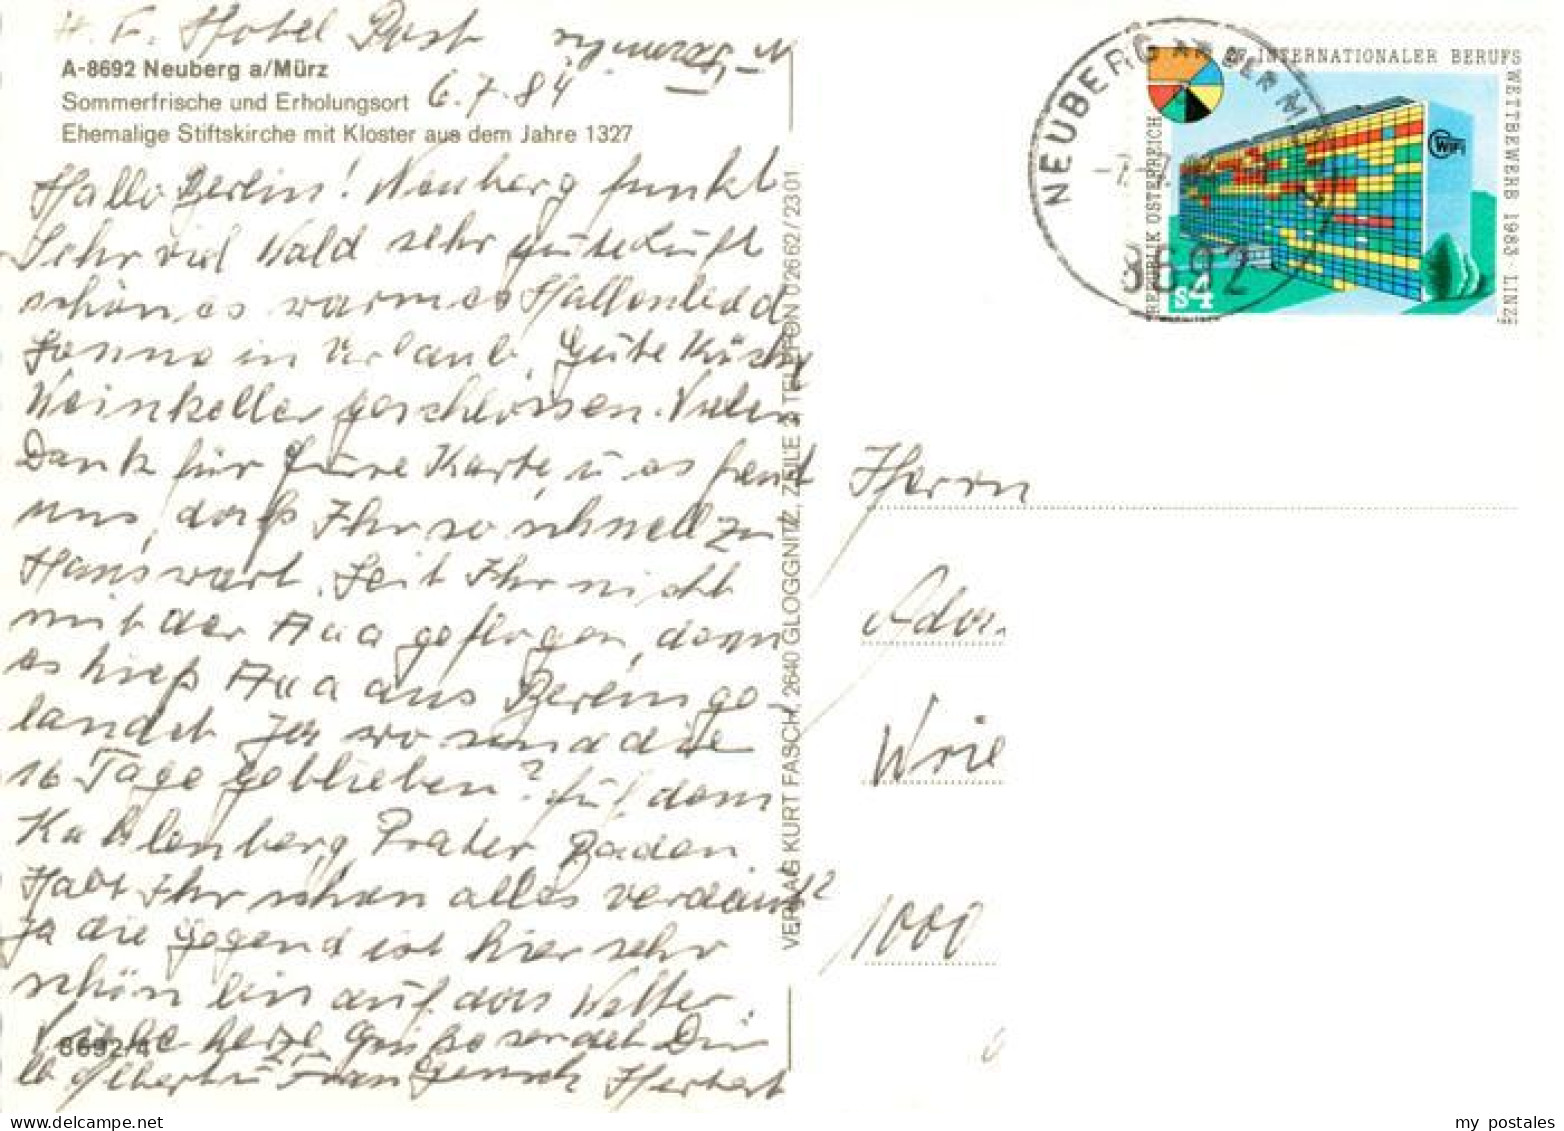 Hotel Post
A-8692 Neuberg a/Mürz
Sommerfrische und Erholungsort 6.7.84
Ehemalige Stiftskirche mit Kloster aus dem Jahre 1327
Hallo Berlin! Neuberg funkt
Sehr viel Wald sehr gute Luft
schönes warmes Hallenbad
Sonne in Urlaub. Gute Küche
Weinkeller geschlossen. Vielen
Dank für Eure Karte, u es freut
uns, daß Ihr so schnell zu
Haus wart. Seit Ihr nicht
mit der Aua geflogen, denn
es hieß Aua aus Berlin ge-
landet. Ja wo sind die
16 Tage geblieben? Auf dem
Kahlenberg, Prater Baden.
Habt Ihr schon alles verdaut?
Ja die Gegend ist hier sehr
schön bis auf das Wetter.
8692/4
herzl. Grüße sendet Dir
Albert u Frau Herbert
VERLAG KURT FASCH, 2640 GLOGGNITZ, ZEILE 2, TELEFON 02662/2301
NEUBERG AN DER MÜRZ
8692
27. INTERNATIONALER BERUFS
WETTBEWERB 1983 LINZ
REPUBLIK ÖSTERREICH
S4
WIFI
Herrn
Wrie
1000
my postales